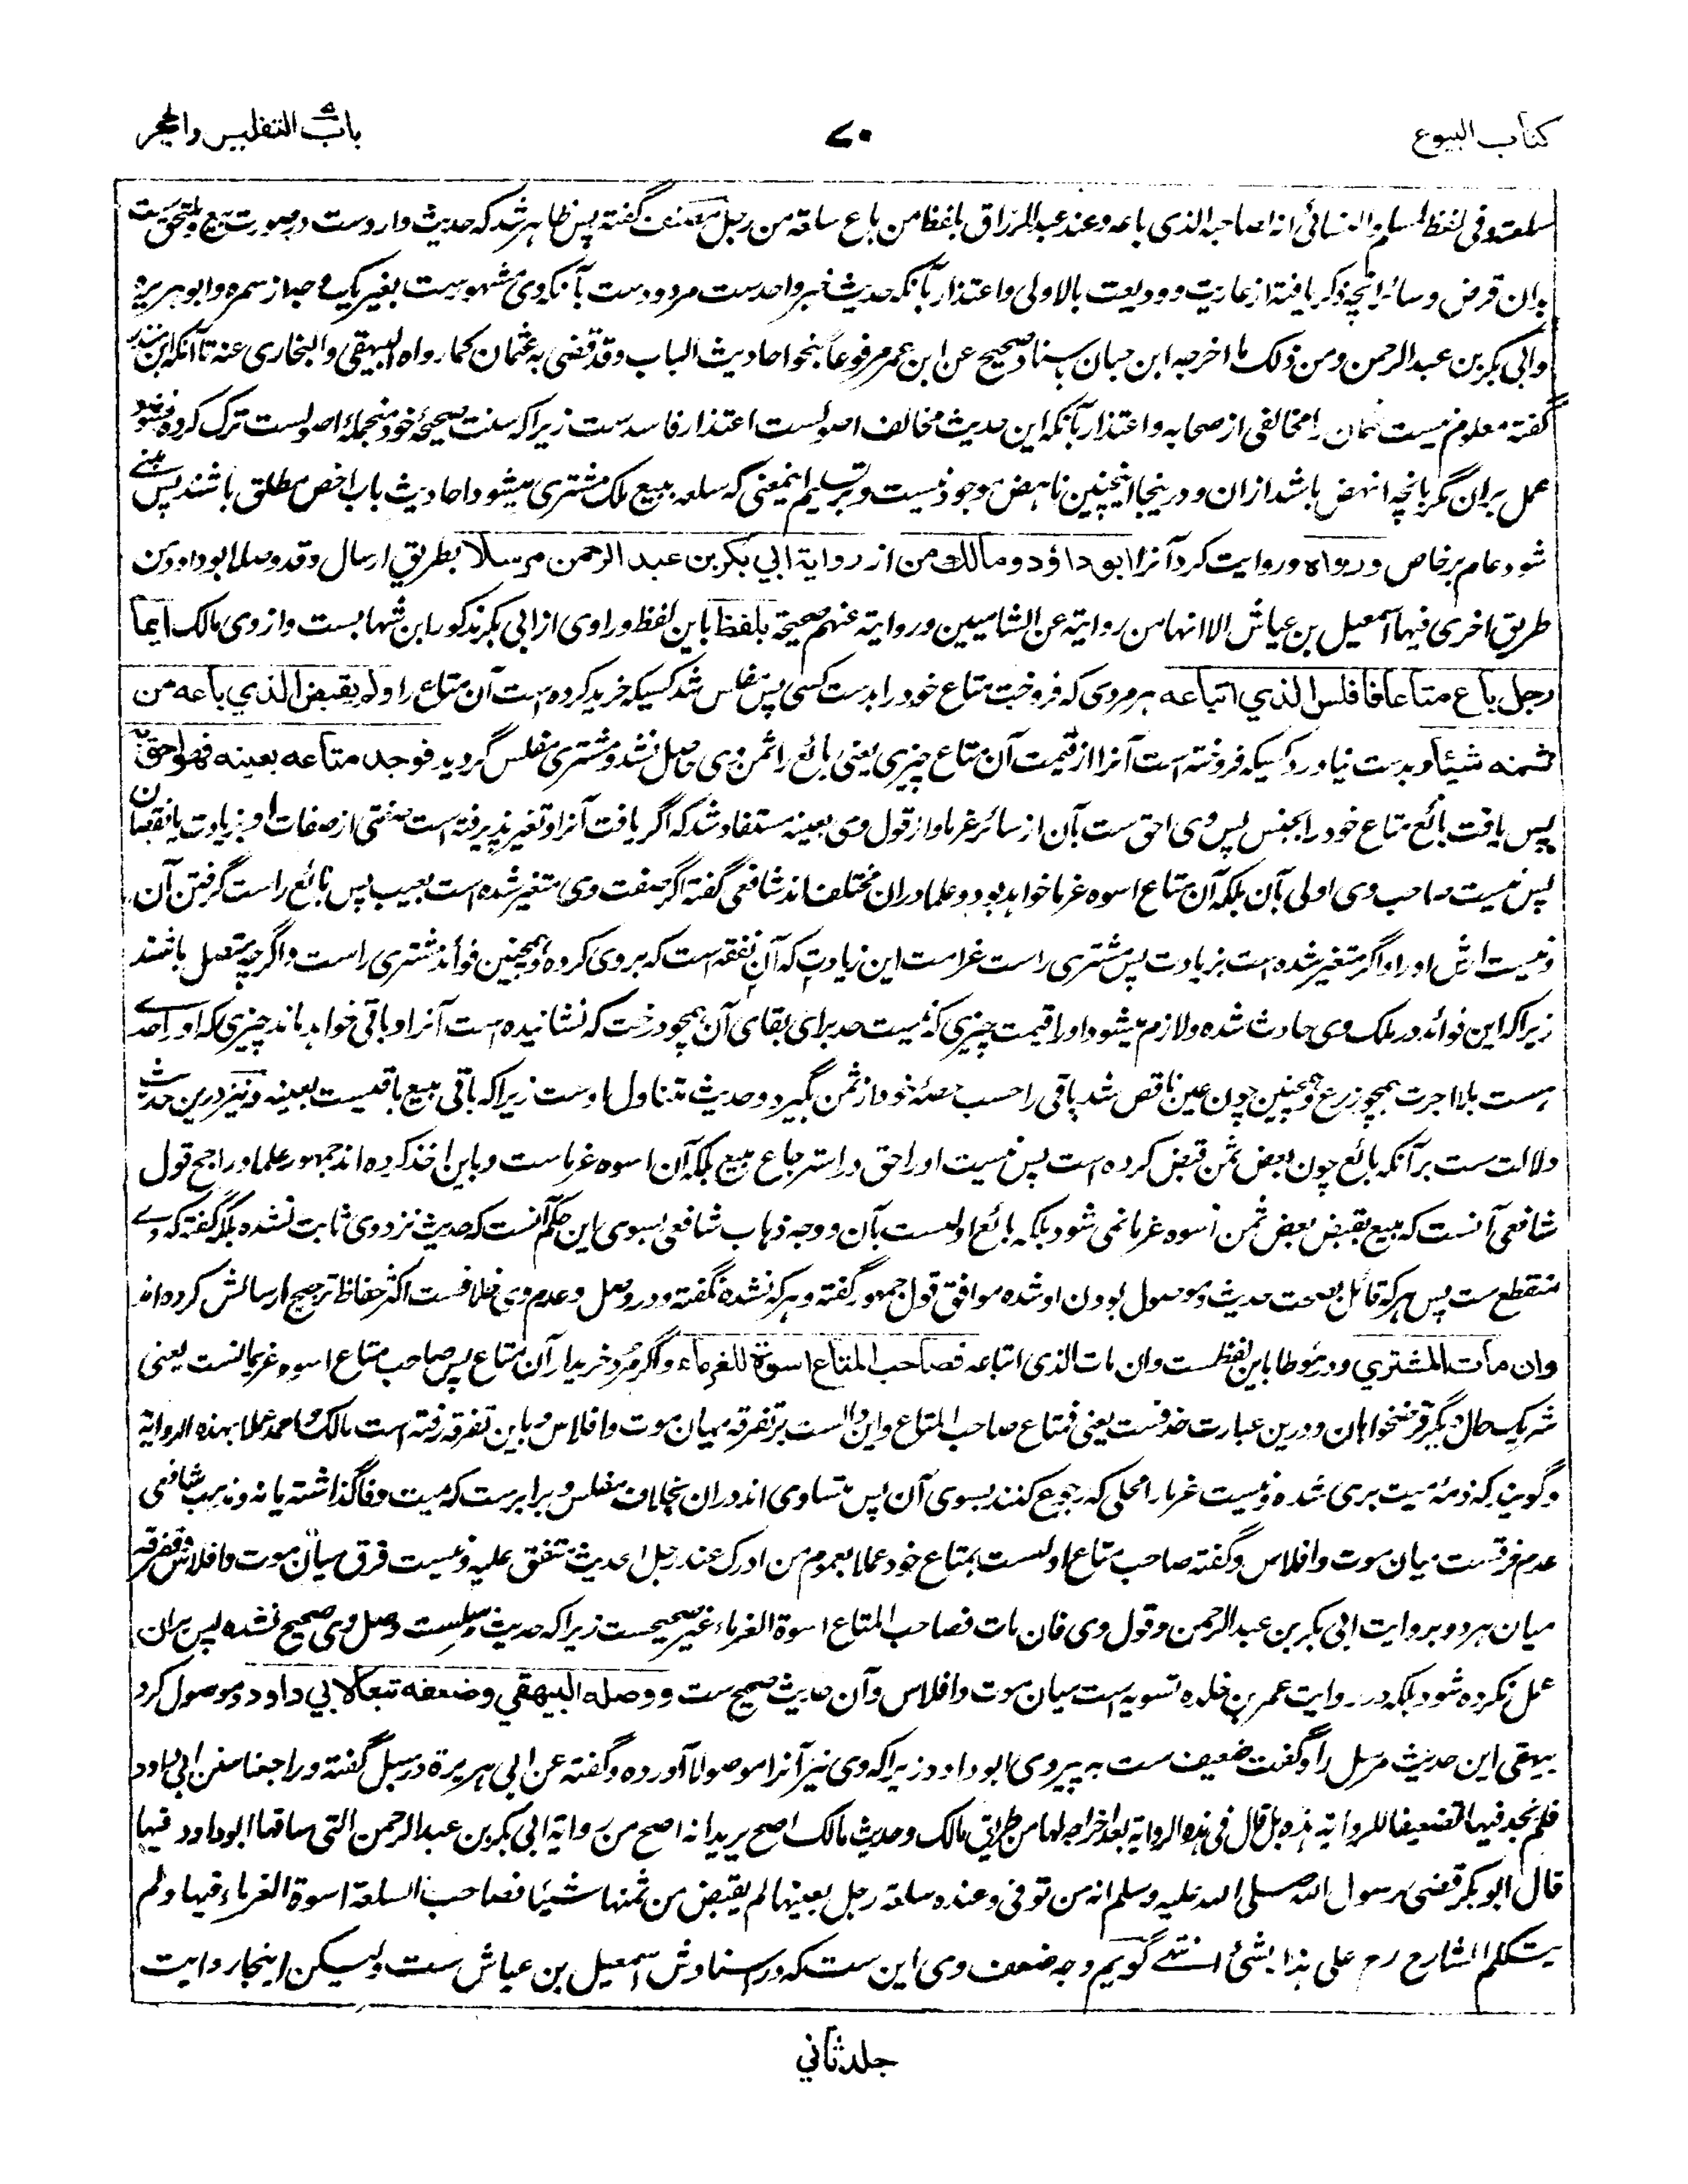 كتاب البيوع
۷۰
باب التفليس والحجر
سلعته وفی لفظ لمسلم والنسائی انه لصاحبه الذی باعه وعند عبد الرزاق بلفظ من باع سلعة من رجل مصنف گفته پس ظاهر شد که حدیث وارد ست در صورت بیع و ملتحق ست
بدان قرض وسائر انچه ذکر یافته از عاریت و ودیعت بالاولی واعتذار بآنکه حدیث خبر واحدست مردودست بآنکه وی مشهورست بغیر یک وجه از سمره وابو هریره
وابی بکر بن عبد الرحمن ومن ذلک ما اخرجه ابن حبان باسناد صحیح عن ابن عمر مرفوعاً بنحو احادیث الباب وقد قضی به عثمان کما رواه البیهقی والبخاری عنه تا آنکه ابن منذر
گفته معلوم نیست عثمان را مخالفی از صحابه واعتذار بآنکه این حدیث مخالف اصولست اعتذار فاسدست زیرا که سنت صحیحه خود منجملهٔ اصولست ترک کرده نمیشود
عمل بران مگر بانچه انهض باشد ازان و در ینجا اینچنین ناهض موجود نیست و بر تسلیم اینمعنی که سلعه ببیع ملک مشتری میشود احادیث باب اخص مطلق باشند پس مبنی
شود عام بر خاص ورواه و روایت کرد آنرا ابو داؤد ومالك من از رواية ابي بكر بن عبد الرحمن مرسلا بطریق ارسال وقد وصله ابو داود من
طریق اخری فیها اسمعیل بن عیاش الا انها من روایته عن الشامیین وروایته عنهم صحیحة بلفظ باین لفظ و راوی از ابی بکر مذکور ابن شهابست واز وی مالک ایما
رجل باع متاعا فافلس الذي ابتاعه هر مردی که فروخت متاع خود را بدست کسی پس مفلس شد کسیکه خرید کرده است آن متاع را ولم يقبض الذي باعه من
ثمنه شيئا و بدست نیاورد کسیکه فروخته است آنرا از قیمت آن متاع چیزی یعنی بائع را ثمن وی حاصل نشد و مشتری مفلس گردید فوجد متاعه بعينه فهو احق به
پس یافت بائع متاع خود را بجنس پس وی احق ست بآن از سائر غرما واز قول وی بعینه مستفاد شد که اگر یافت آنرا و تغیر پذیرفته است صفتی از صفات او بزیادت یا نقصان
پس نیست صاحب وی اولی بآن بلکه آن متاع اسوه غرما خواهد بود و علما دران مختلف اند شافعی گفته اگر صفت وی متغیر شده است بعیب پس بائع راست گرفتن آن
و نیست ارش او را و اگر متغیر شده است بزیادت پس مشتری راست غرامت این زیادت که آن نفقه است که بر وی کرده و همچنین فوائد مشتری راست و اگرچه متصل باشند
زیرا که این فوائد در ملک وی حادث شده ولازم میشود او را قیمت چیزی که نیست حد برای بقای آن همچو درخت که نشانیده است آنرا و باقی خواهد ماند چیزی که او را حدی
هست بلا اجرت همچو زرع و همچنین چون عین ناقص شد باقی را حسب حصهٔ خود از ثمن بگیرد و حدیث متناول اوست زیرا که باقی مبیع باقیست بعینه و نیز درین حدیث
دلالت ست بر آنکه بائع چون بعض ثمن قبض کرده است پس نیست او را حق در استرجاع مبیع بلکه آن اسوه غرماست و باین اخذ کرده اند جمهور علما و راجح قول
شافعی آنست که مبیع بقبض بعض ثمن اسوه غرما نمی شود بلکه بائع اولیست بآن و وجه ذهاب شافعی بسوی این حکم آنست که حدیث نزد وی ثابت نشده بلکه گفته که وی
منقطع ست پس هر که قائل بصحت حدیث و موصول بودن او شده موافق قول جمهور گفته و هر که نشده نگفته و در وصل و عدم وی خلافست اکثر حفاظ ترجیح ارسالش کرده اند
وان مات المشتري و در موطا باین لفظست وان مات الذی ابتاعه فصاحب المتاع اسوة للغرماء و اگر مرد خریدار آن متاع پس صاحب متاع اسوه غریمانست یعنی
شریک حال دیگر قرضخواهان و درین عبارت حذفست یعنی فمتاع صاحب المتاع و این دالست بر تفرقه میان موت و افلاس و باین تفرقه رفته است مالک و احمد عملا بهذه الروایة
و گویند که ذمهٔ میت بری شده و نیست غرما را محلی که رجوع کنند بسوی آن پس متساوی اند دران بخلاف مفلس و برابرست که میت وفا گذاشته یا نه و مذهب شافعی
عدم فرقست میان موت و افلاس و گفته صاحب متاع اولیست بمتاع خود عملا بعموم من ادرک عند رجل الحدیث متفق علیه و نیست فرق میان موت و افلاس و تفرقه
میان هر دو بروایت ابی بکر بن عبد الرحمن و قول وی فان مات فصاحب المتاع اسوة الغرماء غیر صحیحست زیرا که حدیث مرسلست وصل وی صحیح نشده پس بران
عمل نکرده شود بلکه در روایت عمر بن خلده تسویه است میان موت و افلاس و آن حدیث صحیح ست ووصله البيهقي وضعفه تبعا لابي داود و موصول کرد
بیهقی این حدیث مرسل را و گفت ضعیف ست به پیروی ابو داود زیرا که وی نیز آنرا موصولا آورده و گفته عن ابی هریرة در سبل گفته وراجعنا سنن ابی داود
فلم نجد فیها تضعیفا للروایة هذه بل قال فی هذه الروایة بعد اخراجه لها من طریق مالک وحدیث مالک اصح یرید انه اصح من روایة ابی بکر بن عبد الرحمن التی ساقها ابو داود فیها
قال ابو بکر قضی رسول الله صلی الله علیه وسلم انه من توفی وعنده سلعة رجل بعینها لم یقبض من ثمنها شیئا فصاحب السلعة اسوة الغرماء فیها ولم
یتکلم الشارع رح علی هذا بشئ انتهے گویم وجه ضعف وی این ست که در اسنادش اسمعیل بن عیاش ست ولیکن اینجا روایت
جلد ثاني